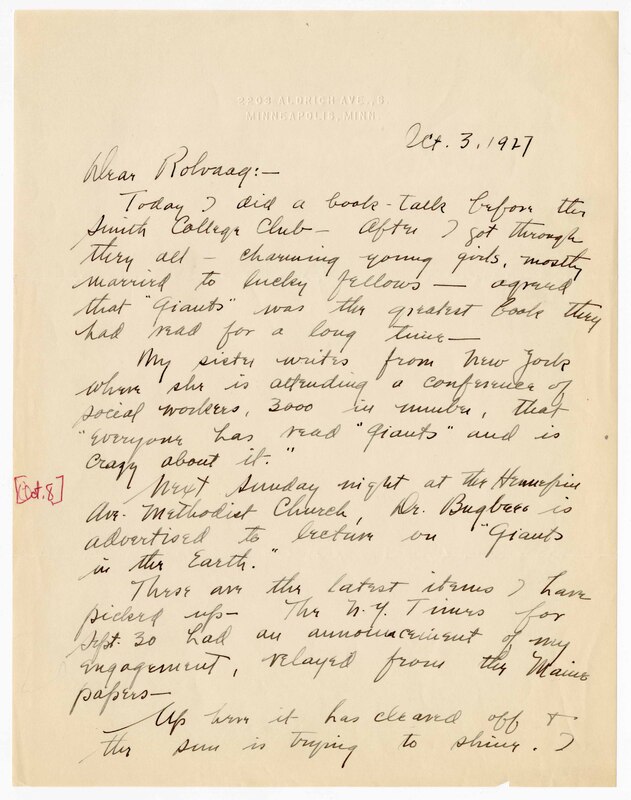 2203 ALDRICH AVE., S.
MINNEAPOLIS, MINN.
Oct. 3, 1927
Dear Rolvaag:—
Today I did a book-talk before the
Smith College Club — After I got through
they all — charming young girls, mostly
married to lucky fellows — agreed
that "Giants" was the greatest book they
had read for a long time —
My sister writes from New York
where she is attending a conference of
social workers, 3000 in number, that
"Everyone has read "Giants" and is
crazy about it."
Next Sunday night at the Hennepin
[Oct. 8]
Ave. Methodist Church, Dr. Bugbee is
advertised to lecture on "Giants
in the Earth."
These are the latest items I have
picked up — The N.Y. Times for
Sept. 30 had an announcement of my
engagement, relayed from the Maine
papers —
Up here it has cleared off +
the sun is trying to shine. I